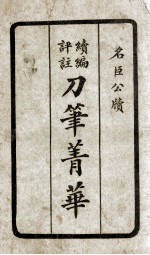 名臣公牘
續編
評註
刀筆菁華